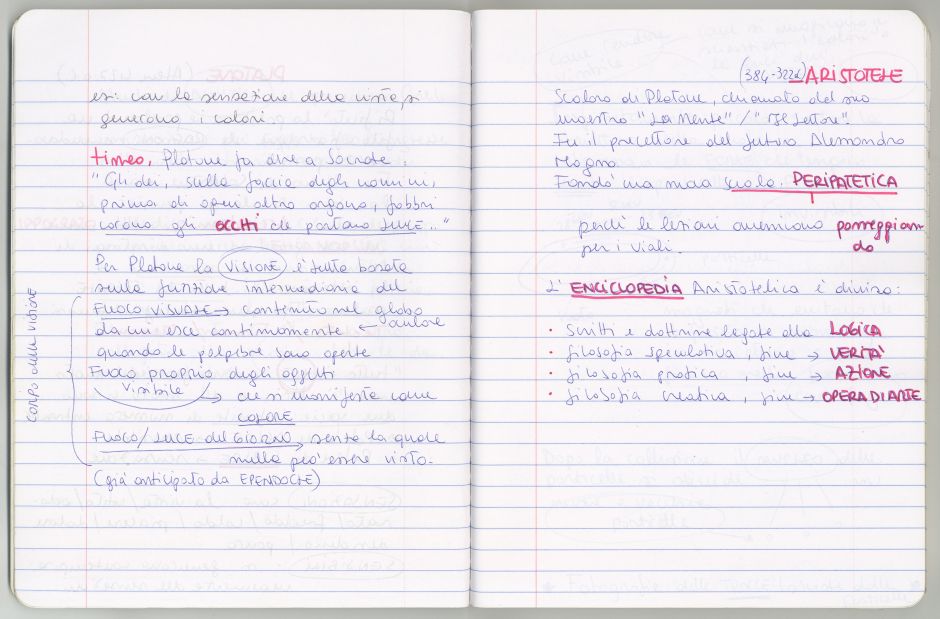 es: con la sensazione della vista si
generano i colori.
timeo, Platone fa dire a Socrate:
"Gli dei, sulla faccia degli uomini,
prima di ogni altro organo, fabbri
carono gli OCCHI che portano LUCE.."
Per Platone la VISIONE è tutta basata
sulla funzione intermediaria del
FUOCO VISUALE → contenuto nel globo
da cui esce continuamente ←
quando le palpebre sono aperte
Fuoco proprio degli oggetti
visibile → cui si manifesta come
COLORE
FUOCO/LUCE del GIORNO → senza la quale
nulla può essere visto.
(già anticipato da EPENDOCLE)
CORPO della VISIONE
(384-322 ARISTOTELE
Scolaro di Platone, chiamato dal suo
maestro "La Mente" / "Il Lettore".
Fu il precettore del futuro Alessandro
Magno.
Fondò una nuova scuola. PERIPATETICA
perchè le lezioni avvenivano passeggian
do
per i viali.
L'ENCICLOPEDIA Aristotelica è divisa:
• Scritti e dottrine legate alla LOGICA
• filosofia speculativa, fine → VERITÀ
• filosofia pratica, fine → AZIONE
• filosofia creativa, fine → OPERA D'ARTE